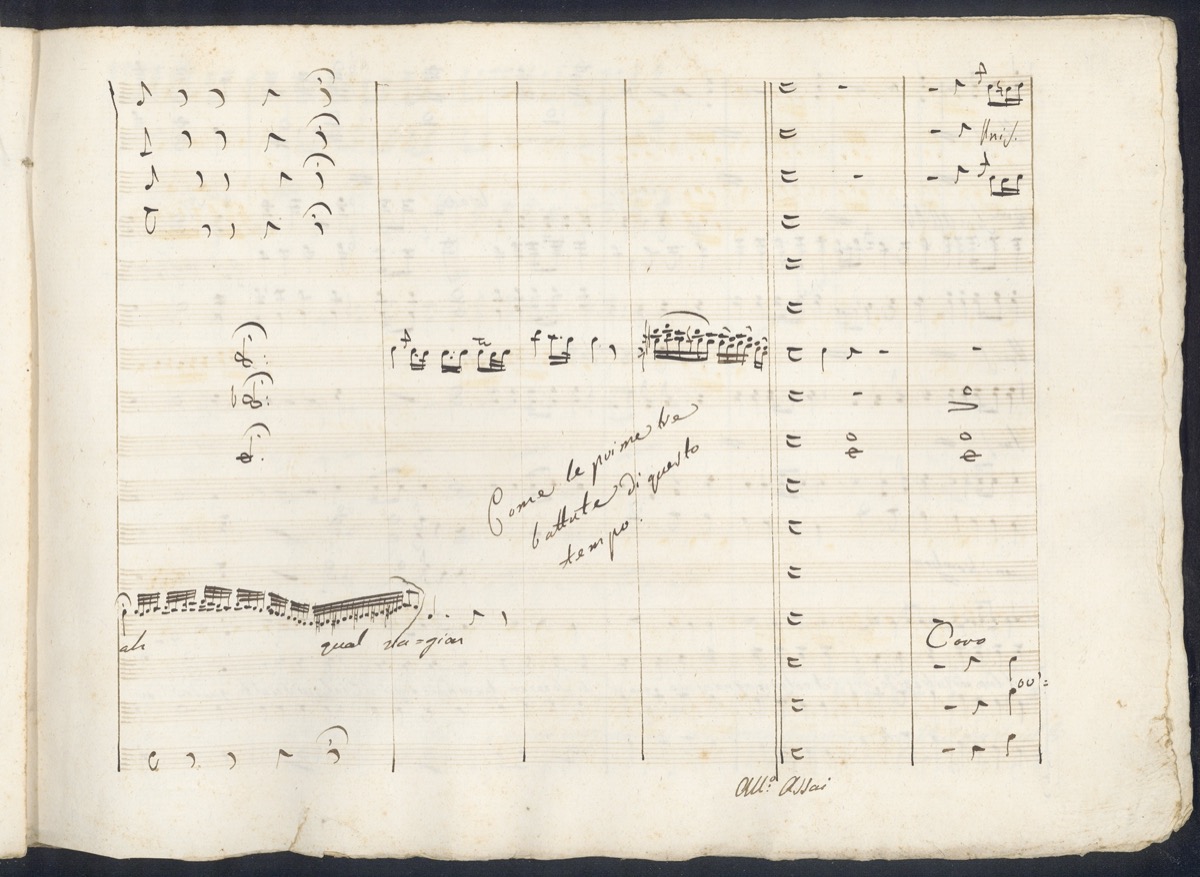 Unis.
Come le prime tre
battute di questo
tempo.
ah qual ra=gion
Coro
ov'=
All:o Assai